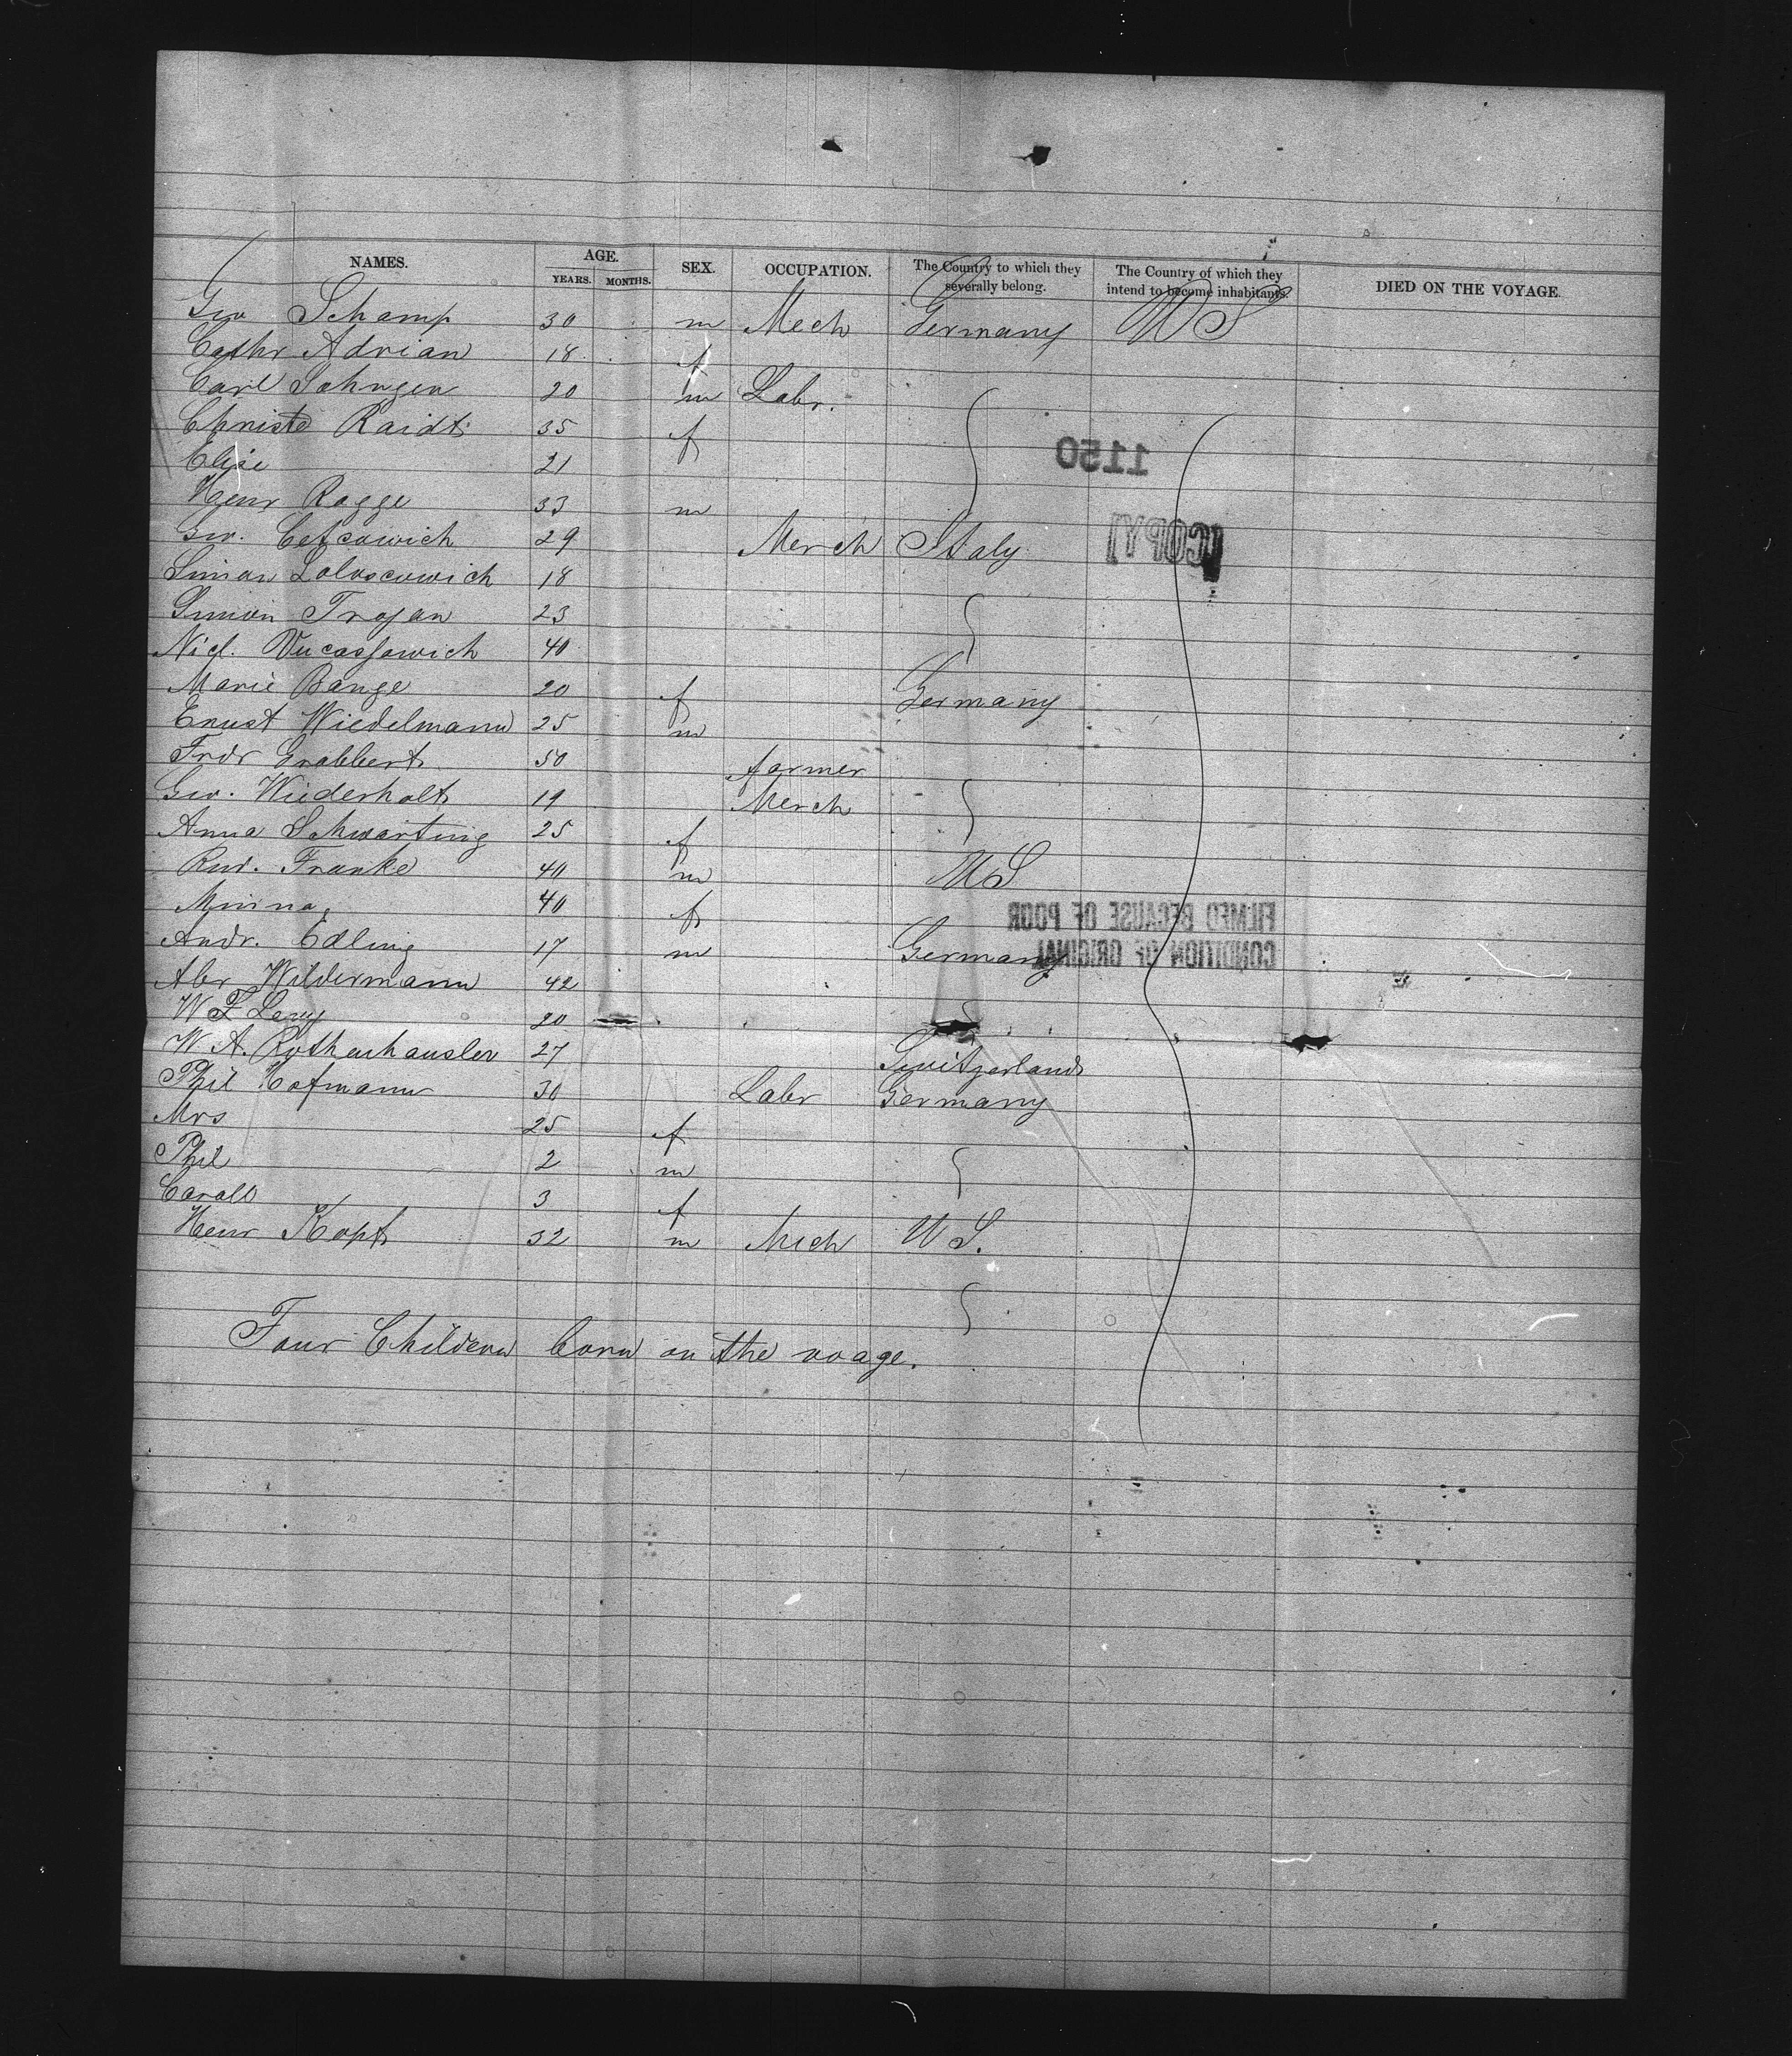 NAMES. AGE. YEARS. MONTHS. SEX. OCCUPATION. The Country to which they severally belong. The Country of which they intend to become inhabitants. DIED ON THE VOYAGE.
Geo Schamp 30 m Mech Germany U S
Cathr Adrian 18 f
Carl Sohngen 20 m Labr.
Christe Raidt 35 f
Elise 21
Henr Rogge 33 m
Geo. Cetcowich 29 Merch Italy
Simon Loloscowich 18
Simon Trojan 23
Nicl. Vucassowich 40
Marie Bange 20 f Germany
Ernst Wiedelmann 25 m
Fredr Grabbert 50 farmer
Geo. Wiederholt 19 Merch
Anna Schwarting 25 f
Rud. Franke 40 m U S
Minna 40 f
Andr. Edling 17 m Germany
Abr Wildermann 42
W F Levy 20
W A. Rothenhausler 27 Switzerland
Phil Hofmann 30 Labr Germany
Mrs 25 f
Phil 2 m
Carolb 3 f
Henr Kopf 32 m Mech U S.
Four Children born on the voage.
1150
[COPY]
FILMED BECAUSE OF POOR
CONDITION OF ORIGINAL